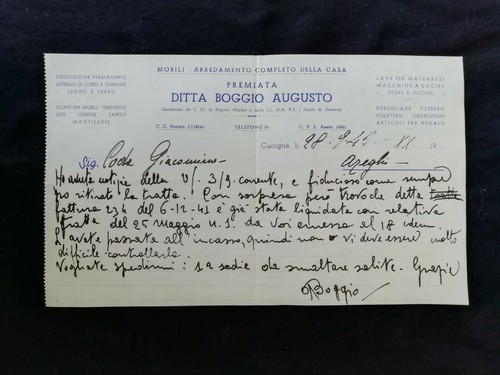 MOBILI - ARREDAMENTO COMPLETO DELLA CASA
ESPOSIZIONE PERMANENTE
MOBILI DI LUSSO E COMUNE
LEGNO E FERRO
STOFFE PER MOBILI - TENDAGGI
SETE - COPERTE - TAPPETI
MANTILERIE
PREMIATA
DITTA BOGGIO AUGUSTO
LANE PER MATERASSI
MACCHINE A CUCIRE
STUFE E CUCINE
PORCELLANE - VETRERIE
POSATERIE - CASALINGHI
ARTICOLI PER REGALO
C. C. Postale
TELEFONO
C. P. E. Aosta
Cuorgnè, li 28. 9. 42 - XX
Sig. Coda Giacomino - Azeglio
Ho avuta notizie della V/ 3/9 corrente, e fiducioso come sempre
ho ritirato la tratta. Con sorpresa però trovo che detta
fattura 234 del 6-12-41 è già stata liquidata con relativa
tratta del 25 maggio u. s. da voi emessa al 18 idem.
L'avete passata all'incasso, quindi non vi deve essere molto
difficile controllarla.
Vogliate spedirmi: 12 sedie da smaltare solite. Grazie
Boggio